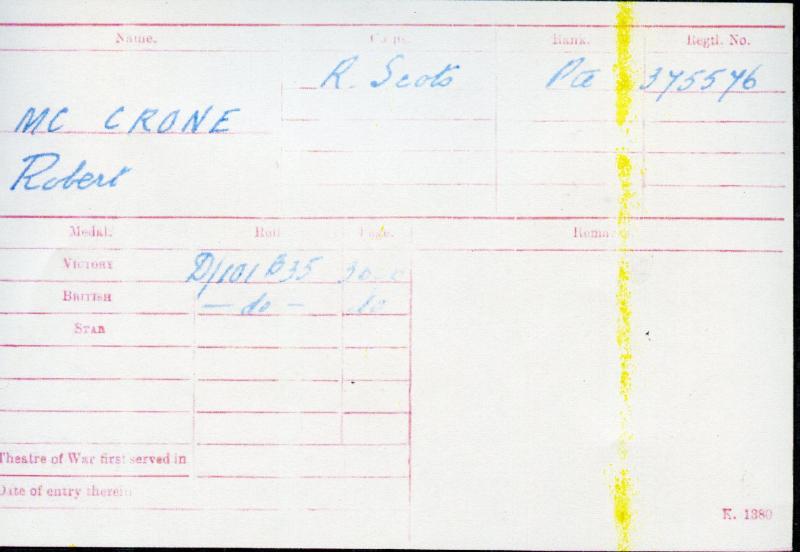 Name. Corps. Rank. Regtl. No.
R. Scots Pte 375576
MC CRONE
Robert
Medal. Roll Page. Remarks
VICTORY D/101 B35
BRITISH — do — do
STAR
Theatre of War first served in
Date of entry therein
K. 1380